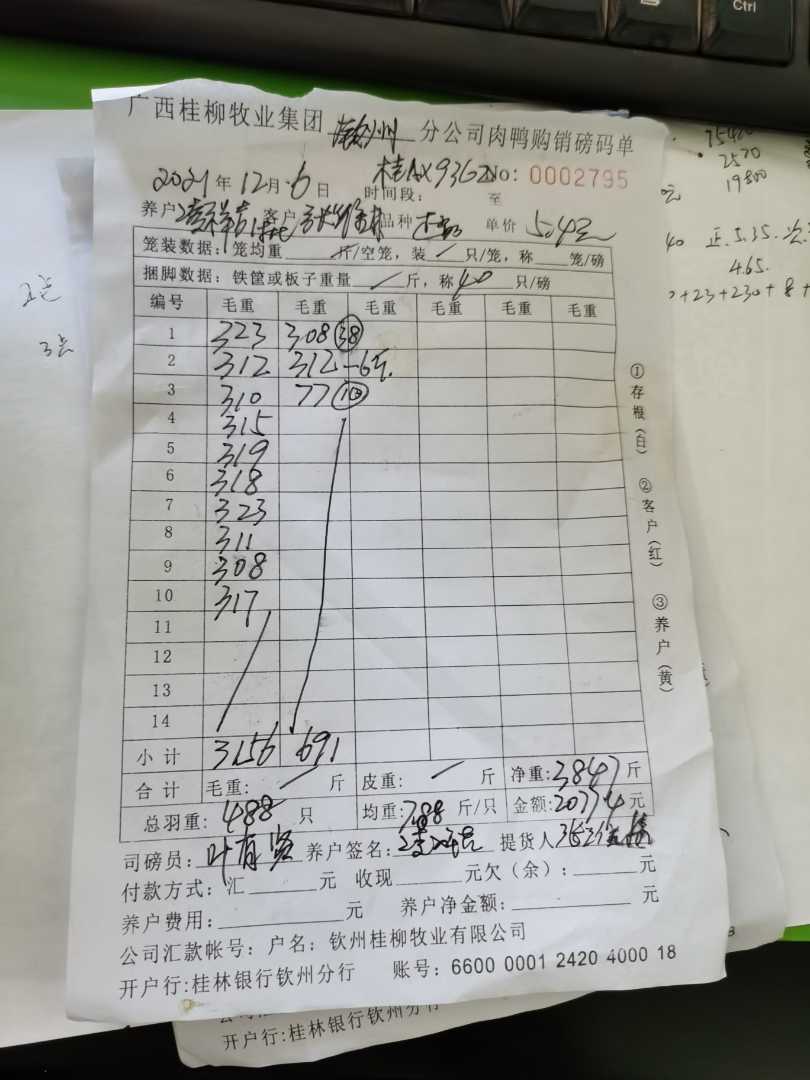 广西桂柳牧业集团 钦州 分公司肉鸭购销磅码单
2021年12月6日 时间段: 至 No: 0002795
桂AX9362
养户: 客户: 品种 单价 5.4元
笼装数据: 笼均重 / 斤/空笼, 装 / 只/笼, 称 笼/磅
捆脚数据: 铁筐或板子重量 / 斤, 称 40 只/磅
编号 毛重 毛重 毛重 毛重 毛重 毛重
1 323 308 38
2 312 312
3 310 77 10
4 315
5 319
6 318
7 323
8 311
9 308
10 317
11
12
13
14
小计 3156 691
合计 毛重: / 斤 皮重: / 斤 净重: 3847 斤
总羽重: 488 只 均重: 7.88 斤/只 金额: 20774 元
司磅员: 叶有 养户签名: 提货人
付款方式: 汇 元 收现 元欠(余): 元
养户费用: 元 养户净金额: 元
公司汇款帐号: 户名: 钦州桂柳牧业有限公司
开户行:桂林银行钦州分行 账号: 6600 0001 2420 4000 18
①存根(白) ②客户(红) ③养户(黄)
开户行:桂林银行钦州分行
2570
19800
40 正.5.35.
4.65.
+23+230+8+
Ctrl